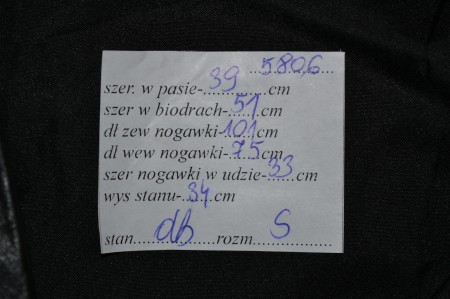 580,6
szer. w pasie-39cm
szer w biodrach-51cm
dl zew nogawki-101cm
dl wew nogawki-75cm
szer nogawki w udzie-33cm
wys stanu-34cm
stan db rozm S